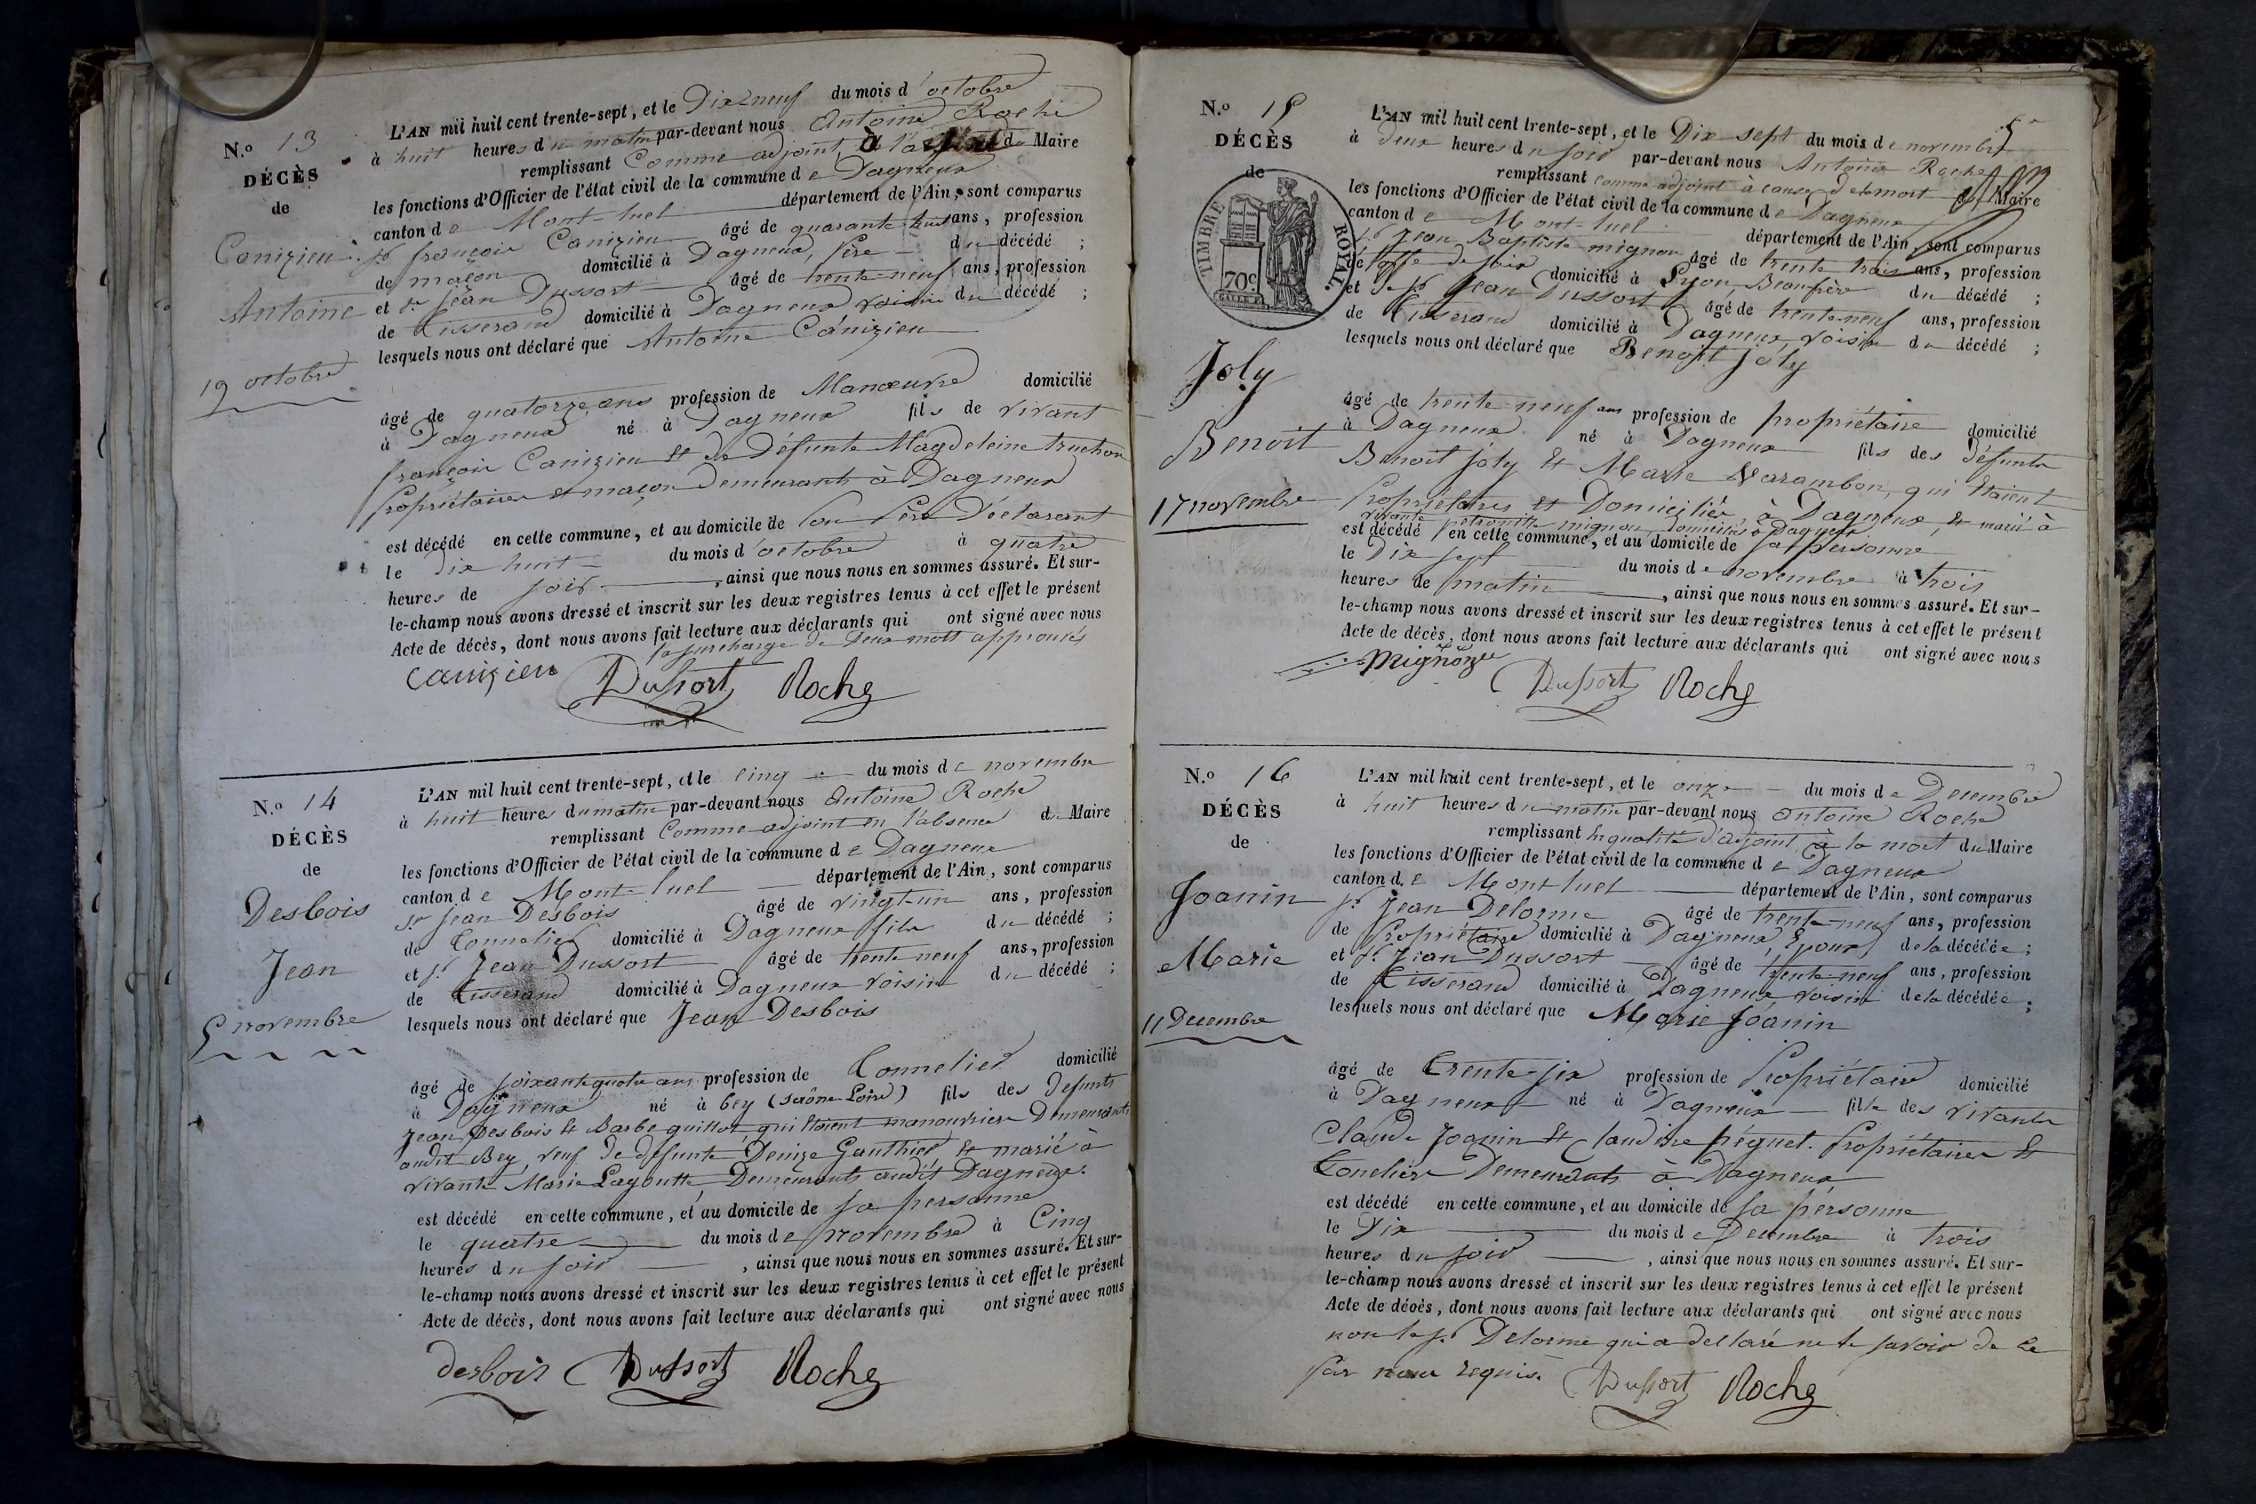 N.º 13
DÉCÈS
de
Canizieu
Antoine
19 octobre
L'AN mil huit cent trente-sept, et le Dix neuf du mois d'octobre
à huit heures du matin par-devant nous Antoine Roche
remplissant Comme adjoint, à l'absence du Maire
les fonctions d'Officier de l'état civil de la commune de Dagneux
canton de Mont-luel département de l'Ain, sont comparus
sr françois Canizieu âgé de quarante huit ans, profession
de maçon domicilié à Dagneux, Père du décédé ;
et sr jean Dussort âgé de trente-neuf ans, profession
de Tisserand domicilié à Dagneux voisin du décédé ;
lesquels nous ont déclaré que Antoine Canizieu
âgé de quatorze ans profession de Manœuvre domicilié
à Dagneux né à Dagneux fils de vivant
françois Canizieu et de Défunte Magdeleine truchon
Propriétaires et maçon Demeurants à Dagneux
est décédé en cette commune, et au domicile de son Père Déclarant
le dix huit du mois d'octobre à quatre
heures de soir, ainsi que nous nous en sommes assuré. Et sur-
le-champ nous avons dressé et inscrit sur les deux registres tenus à cet effet le présent
Acte de décès, dont nous avons fait lecture aux déclarants qui ont signé avec nous
la surcharge de Deux mots approuvés
Canizieu Dussort Roche
N.º 14
DÉCÈS
de
Desbois
Jean
5 novembre
L'AN mil huit cent trente-sept, et le cinq du mois de novembre
à huit heures du matin par-devant nous Antoine Roche
remplissant Comme adjoint en l'absence du Maire
les fonctions d'Officier de l'état civil de la commune de Dagneux
canton de Mont-luel département de l'Ain, sont comparus
sr Jean Desbois âgé de vingt-un ans, profession
de Tonnelier domicilié à Dagneux fils du décédé ;
et sr Jean Dussort âgé de trente neuf ans, profession
de Tisserand domicilié à Dagneux voisin du décédé ;
lesquels nous ont déclaré que Jean Desbois
âgé de soixante quatre ans profession de Tonnelier domicilié
à Dagneux né à bey (saône Loire) fils des Defunts
Jean Desbois et Barbe guillot qui étaient manouvriers Demeurants
audit Bey, veuf de défunte Denize Gauthier et marié à
vivante Marie Lagoutte, Demeurants audit Dagneux.
est décédé en cette commune, et au domicile de sa personne
le quatre du mois de novembre à Cinq
heures du soir, ainsi que nous nous en sommes assuré. Et sur-
le-champ nous avons dressé et inscrit sur les deux registres tenus à cet effet le présent
Acte de décès, dont nous avons fait lecture aux déclarants qui ont signé avec nous
desbois Dussort Roche
N.º 15
DÉCÈS
de
TIMBRE ROYAL.
70c
Joly
Benoit
17 novembre
L'AN mil huit cent trente-sept, et le Dix sept du mois de novembre
à deux heures du soir par-devant nous Antoine Roche
remplissant comme adjoint à cause de la mort du Maire
les fonctions d'Officier de l'état civil de la commune de Dagneux
canton de Mont-luel département de l'Ain, sont comparus
sr Jean Baptiste mignon âgé de trente trois ans, profession
d'étoffe de soie domicilié à Lyon, Beaufrère du décédé ;
et le sr Jean Dussort âgé de trente-neuf ans, profession
de Tisserand domicilié à Dagneux, voisin du décédé ;
lesquels nous ont déclaré que Benoit joly
âgé de trente-neuf ans profession de propriétaire domicilié
à Dagneux né à Dagneux fils des Défunts
Benoit joly et Marie Varambon, qui étaient
Propriétaires et Domiciliés à Dagneux, et marié à
vivante petronille mignon, Domiciliés à Dagneux
est décédé en cette commune, et au domicile de sa personne
le Dix sept du mois de novembre à trois
heures de matin, ainsi que nous nous en sommes assuré. Et sur-
le-champ nous avons dressé et inscrit sur les deux registres tenus à cet effet le présent
Acte de décès, dont nous avons fait lecture aux déclarants qui ont signé avec nous
Dussort Roche
N.º 16
DÉCÈS
de
Joanin
Marie
11 Decembre
L'AN mil huit cent trente-sept, et le onze du mois de Decembre
à huit heures du matin par-devant nous Antoine Roche
remplissant En qualité d'adjoint, à la mort du Maire
les fonctions d'Officier de l'état civil de la commune de Dagneux
canton de Mont luel département de l'Ain, sont comparus
sr Jean Delorme âgé de trente-neuf ans, profession
de Propriétaire domicilié à Dagneux, Epoux de la décédée ;
et sr Jean Dussort âgé de trente-neuf ans, profession
de Tisserand domicilié à Dagneux voisin de la décédée ;
lesquels nous ont déclaré que Marie Joanin
âgé de trente-six profession de Propriétaire domicilié
à Dagneux né à Dagneux fille des vivants
Claude Joanin et Claudine péguet. Propriétaires et
Toneliers Demeurants à Dagneux
est décédé en cette commune, et au domicile de sa personne
le Dix du mois de Decembre à trois
heures du soir, ainsi que nous nous en sommes assuré. Et sur-
le-champ nous avons dressé et inscrit sur les deux registres tenus à cet effet le présent
Acte de décès, dont nous avons fait lecture aux déclarants qui ont signé avec nous
non le sr Delorme qui a déclaré ne le savoir de ce
par nous requis.
Dussort Roche